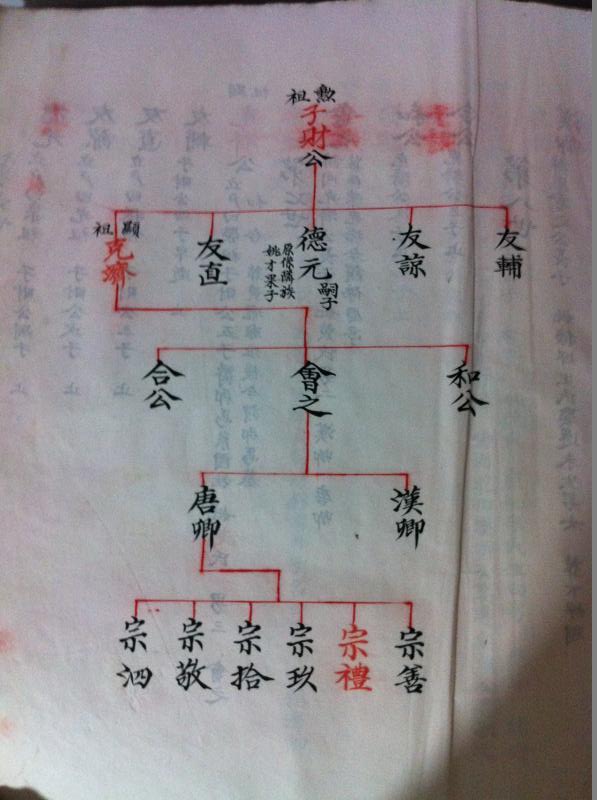 勲祖
子財公
友輔
友諒
德元
嗣子
姚才果子
友直
顯祖
克濟
和公
會之
合公
漢卿
唐卿
宗善
宗禮
宗玖
宗拾
宗敬
宗泗